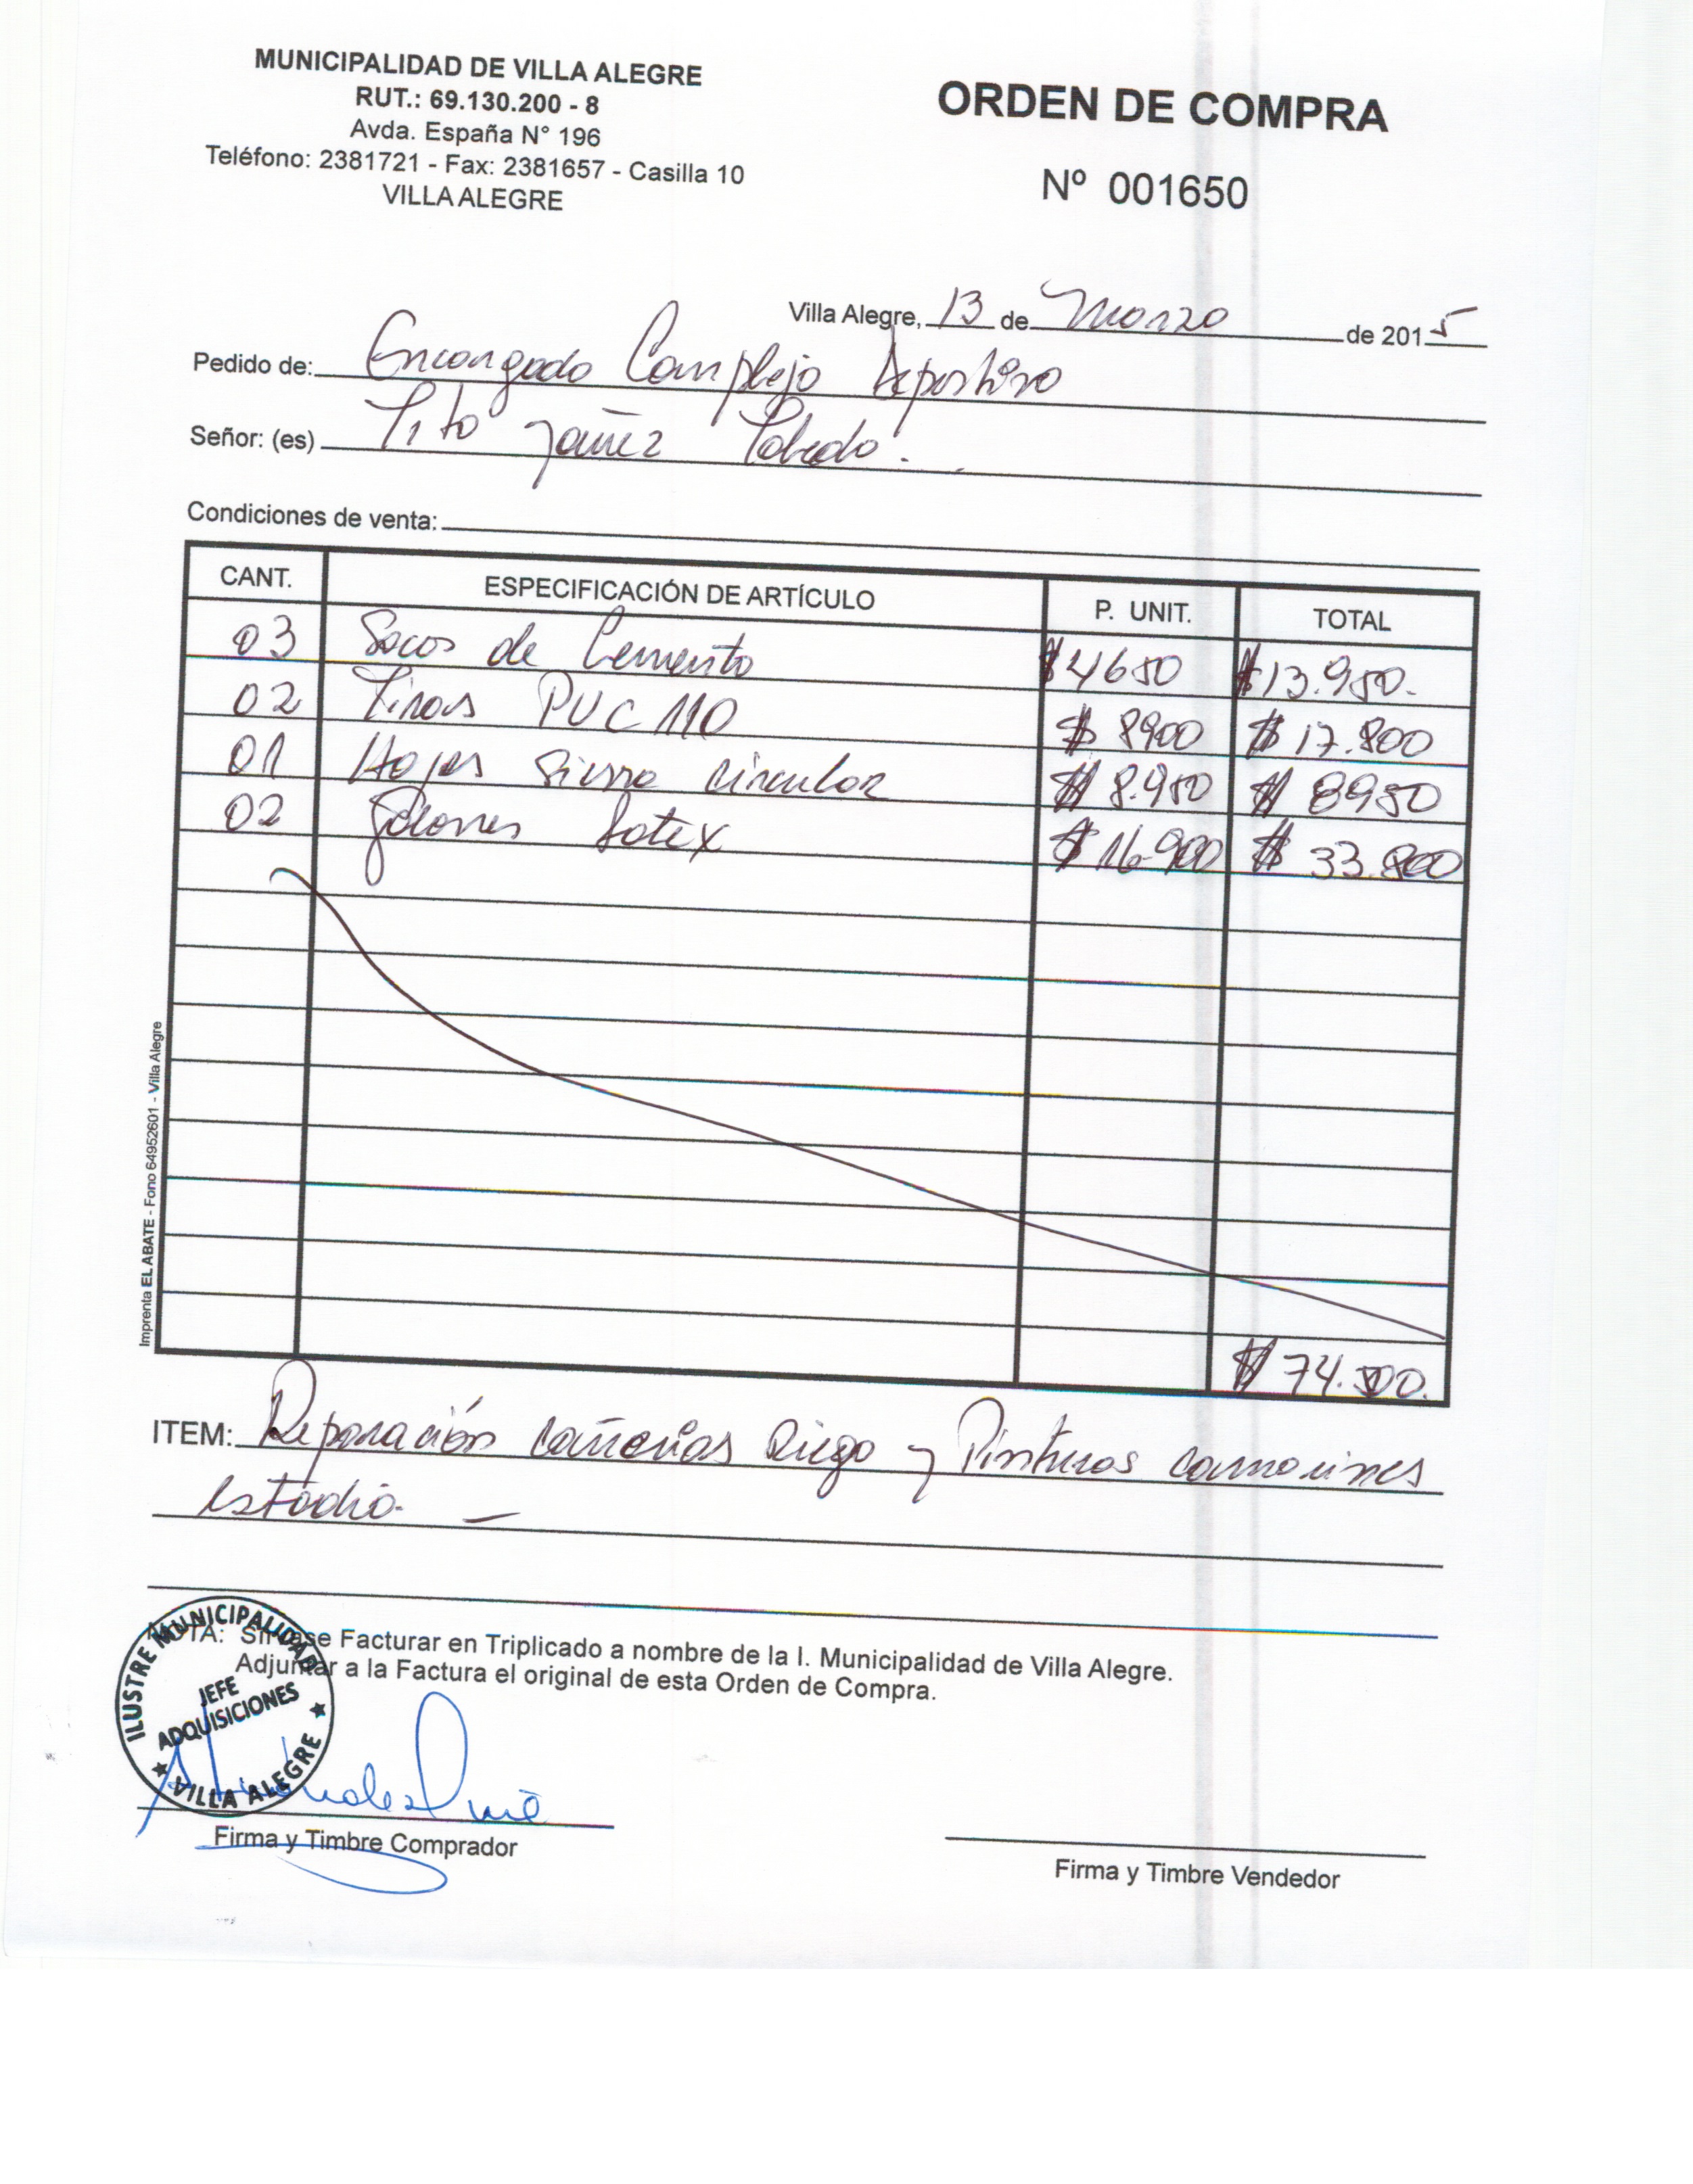 MUNICIPALIDAD DE VILLA ALEGRE
RUT.: 69.130.200 - 8
Avda. España N° 196
Teléfono: 2381721 - Fax: 2381657 - Casilla 10
VILLA ALEGRE
ORDEN DE COMPRA
Nº 001650
Villa Alegre, 13 de Marzo de 2015
Pedido de: Encargado Complejo Deportivo
Señor: (es) Tito Yañez Toledo.
Condiciones de venta:
CANT. ESPECIFICACIÓN DE ARTÍCULO P. UNIT. TOTAL
03 Sacos de Cemento $4650 $13.950.
02 Tiras PVC 110 $ 8900 $ 17.800
01 Hojas Sierra circular $ 8.950 $ 8950
02 Galones Latex $ 16.900 $ 33.800
$ 74.500.
ITEM: Reparación cañerias Riego y Pinturas camarines
estadio. —
NOTA: Sírvase Facturar en Triplicado a nombre de la I. Municipalidad de Villa Alegre.
Adjuntar a la Factura el original de esta Orden de Compra.
ILUSTRE MUNICIPALIDAD
JEFE
ADQUISICIONES
VILLA ALEGRE
Firma y Timbre Comprador
Firma y Timbre Vendedor
Imprenta EL ABATE - Fono 64952601 - Villa Alegre